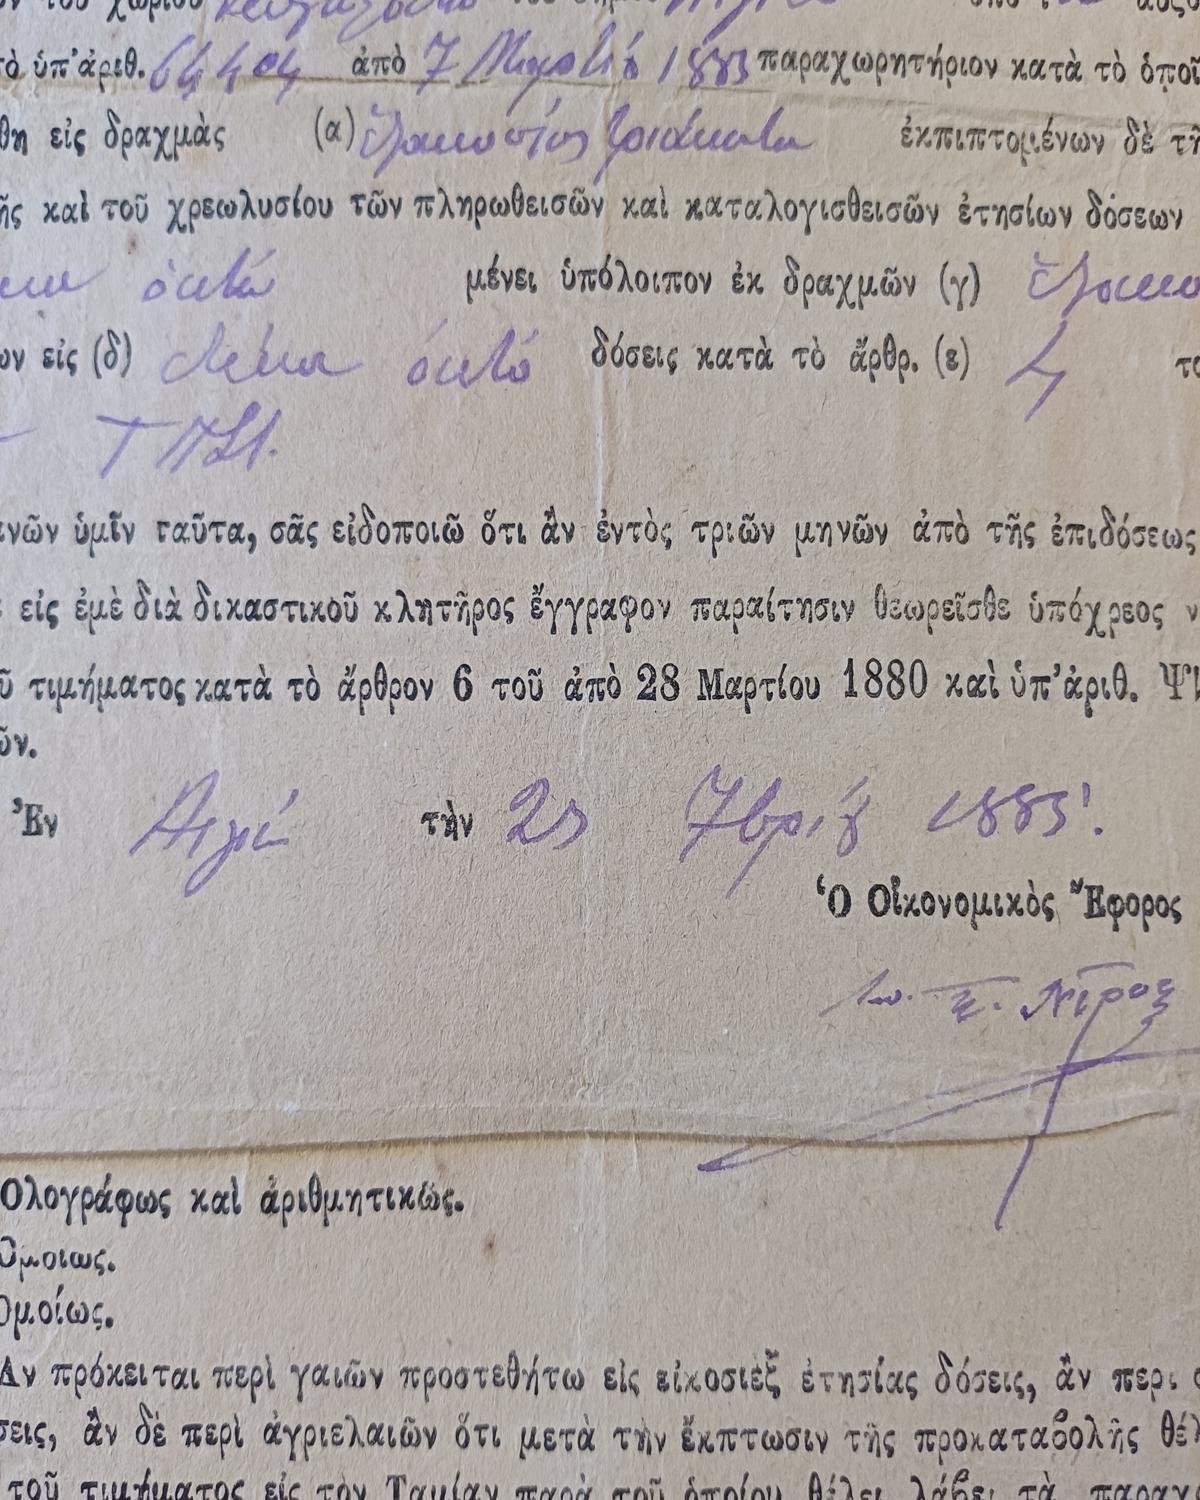 τὸ ὑπ' ἀριθ. 64404 ἀπὸ 7 Μαρτίου 1883 παραχωρητήριον κατὰ τὸ ὁποῖ
θη εἰς δραχμὰς (α) ἑξακοσίας τριάκοντα ἐκπιπτομένων δὲ τῆ
ῆς καὶ τοῦ χρεωλυσίου τῶν πληρωθεισῶν καὶ καταλογισθεισῶν ἐτησίων δόσεων
ὀκτώ μένει ὑπόλοιπον ἐκ δραχμῶν (γ) ἑξακο
ων εἰς (δ) δέκα ὀκτώ δόσεις κατὰ τὸ ἄρθρ. (ε) 4 το
νῶν ὑμῖν ταῦτα, σᾶς εἰδοποιῶ ὅτι ἂν ἐντὸς τριῶν μηνῶν ἀπὸ τῆς ἐπιδόσεως
εἰς ἐμὲ διὰ δικαστικοῦ κλητῆρος ἔγγραφον παραίτησιν θεωρεῖσθε ὑπόχρεος ν
ῦ τιμήματος κατὰ τὸ ἄρθρον 6 τοῦ ἀπὸ 28 Μαρτίου 1880 καὶ ὑπ' ἀριθ. Ψ
ῶν.
Ἐν Αἰγίῳ τὴν 7βρίου
Ὁ Οἰκονομικὸς Ἔφορος
Ὁλογράφως καὶ ἀριθμητικῶς.
Ὁμοιως.
Ὁμοίως.
Ἂν πρόκειται περὶ γαιῶν προστεθήτω εἰς εἰκοσιὲξ ἐτησίας δόσεις, ἂν περι
σεις, ἂν δὲ περὶ ἀγριελαιῶν ὅτι μετὰ τὴν ἔκπτωσιν τῆς προκαταβολῆς θέλ
τοῦ τιμήματος εἰς τὸν Ταμίαν παρὰ τοῦ ὁποίου θέλει λάβει τὰ παραχ